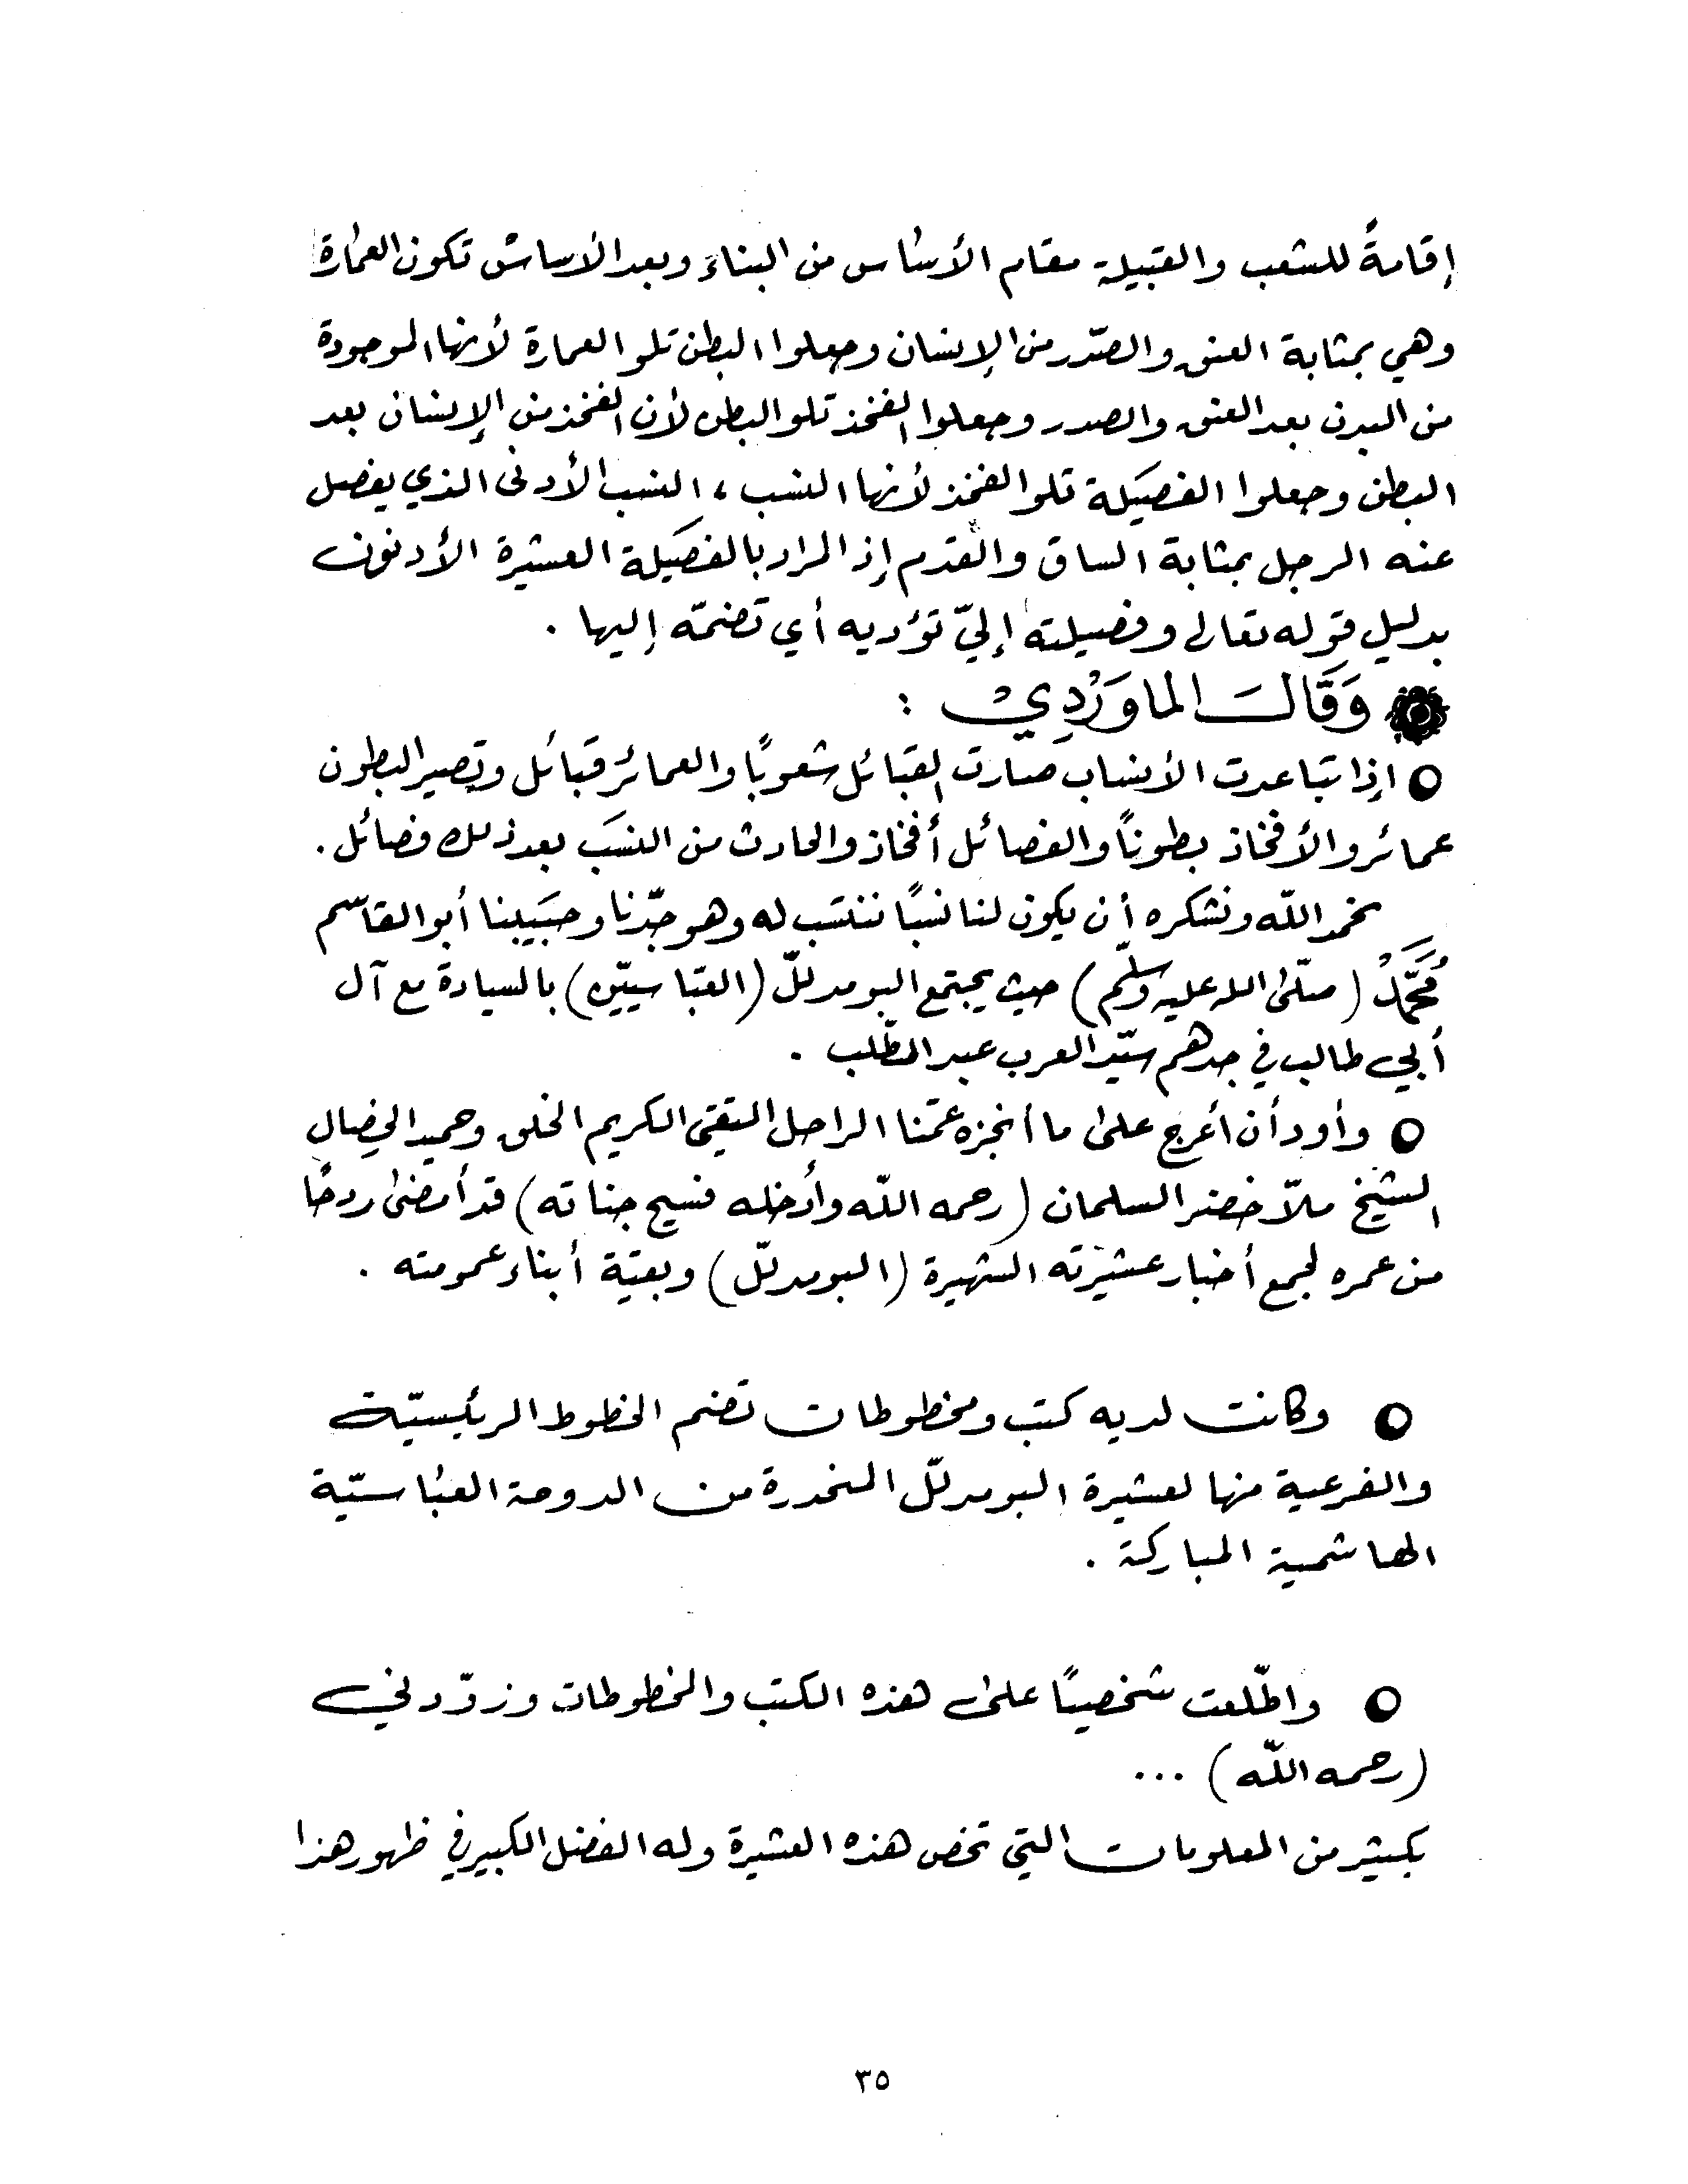 إقامةً للشعب والقبيلة مقام الأساس من البناء وبعد الأساس تكون العمارة
وهي بمثابة العنق والصّدر من الإنسان وجعلوا البطن تلو العمارة لأنها الموجودة
من البدن بعد العنق والصدر وجعلوا الفخذ تلو البطن لأن الفخذ من الإنسان بعد
البطن وجعلوا الفصيَلة تلو الفخذ لأنها النسب ، النسب الأدنى الذي يفصل
عنه الرجل بمثابة الساق والقدم إذ المراد بالفصيَلة العشيرة الأدنون
بدليل قوله تعالى وفصيلته إليّ تؤديه أي تضمّه إليها .
وَقَالَ الماوَرْدِيْ :
o اإذا تباعدت الأنساب صارت القبائل شعوبًا والعمائر قبائل وتصير البطون
عمائر والأفخاذ بطونًا والفصائل أفخاذ والحادث من النسَب بعد ذلك فصائل .
نحمد اللّه ونشكره أن يكون لنا نسبًا ننتسَب له وهو جدّنا وحبَيبنا أبو القاسم
مُحَمَّدْ (صلّى الله عليه وسلّم) حيث يجتمع البو مدللّ (العبّاسييّن) بالسيادة مع آل
أبي طالب في جدهم سيّد العرب عبد المطّلب .
o وأود أن أعرج على ما أنجزه عمّنا الراحل التقي الكريم الخلق وحميد الخِصال
الشيخ ملاّ خضر السلمان (رحمه اللّه وأدخله فسيح جناته) قد أمضى ردحًا
من عمره لجمع أخبار عشيرته الشهيرة (البو مدللّ) وبقيّة أبناء عمومته .
o وكانت لديه كتب ومخطوطات تضم الخطوط الرئيسيّة
والفرعية منها لعشيرة البو مدللّ المنحدرة من الدوحة العبّاسيّة
الهاشمية المباركة .
o واطّلعت شخصيًا على هذه الكتب والمخطوطات وزوّدني
(رحمه اللّه) ...
بكثير من المعلومات التي تخص هذه العشيرة وله الفضل الكبير في ظهور هذا
٣٥